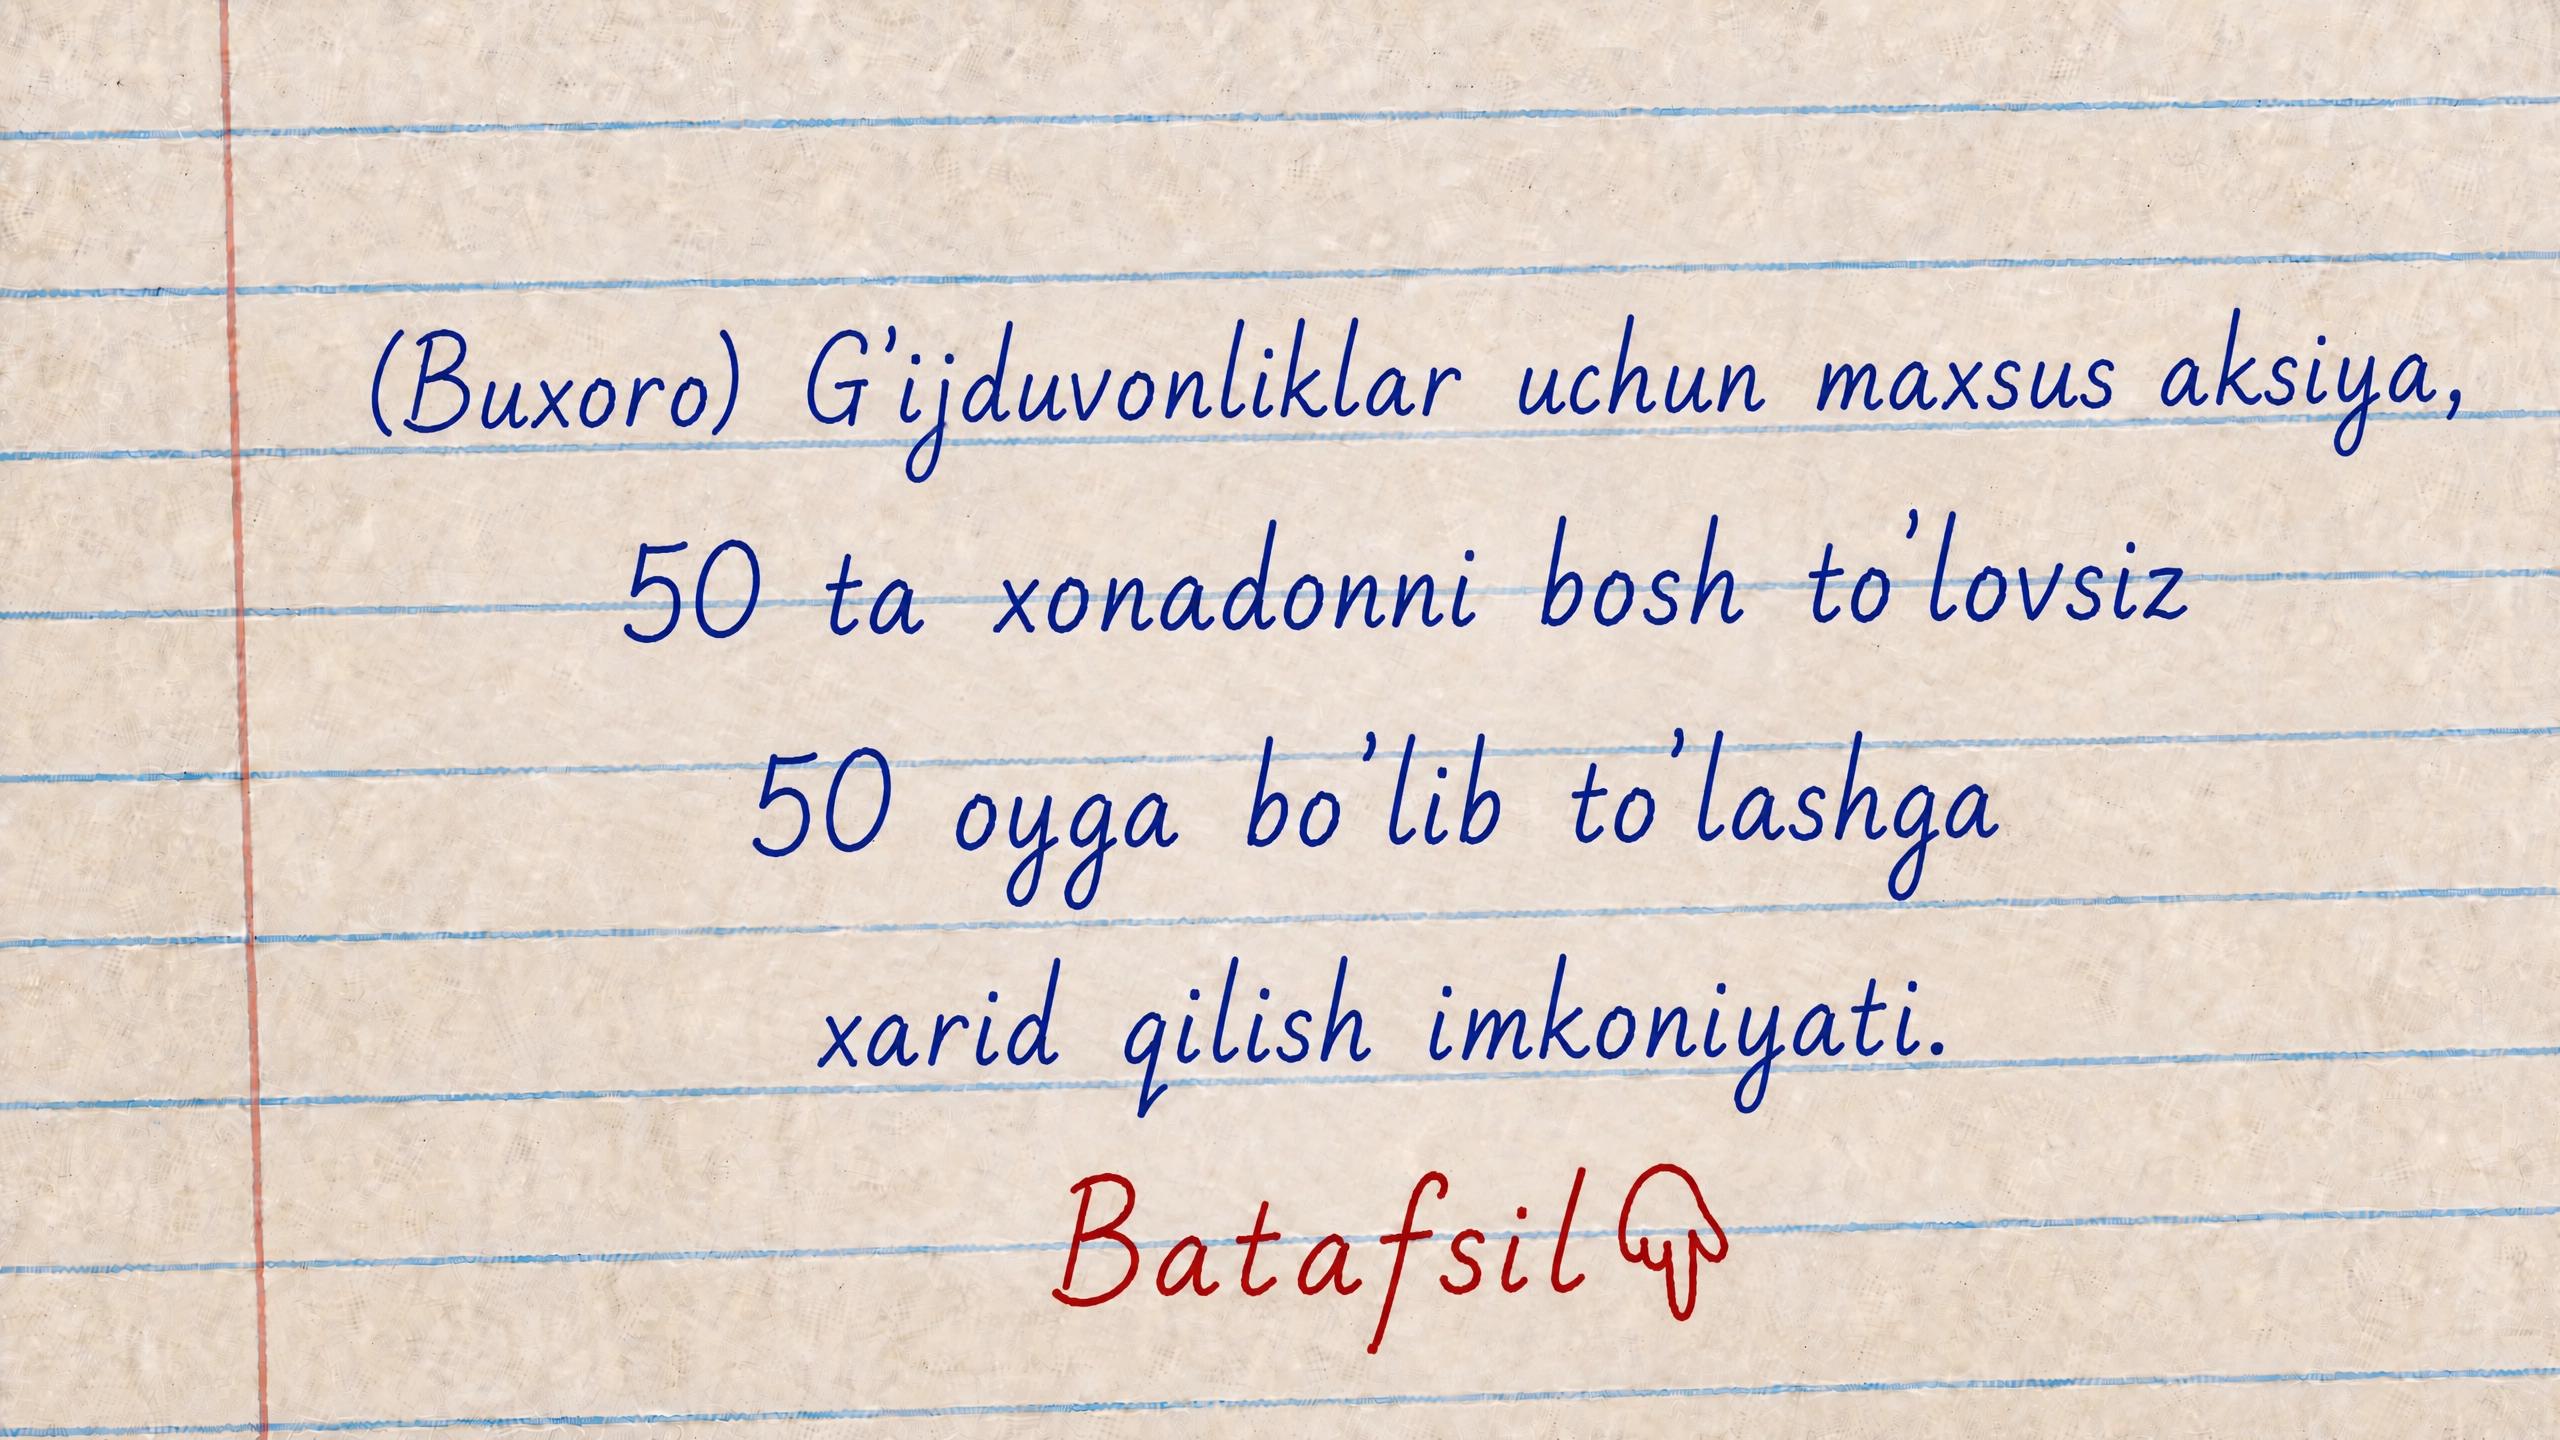 (Buxoro) G'ijduvonliklar uchun maxsus aksiya,
50 ta xonadonni bosh to'lovsiz
50 oyga bo'lib to'lashga
xarid qilish imkoniyati.
Batafsil